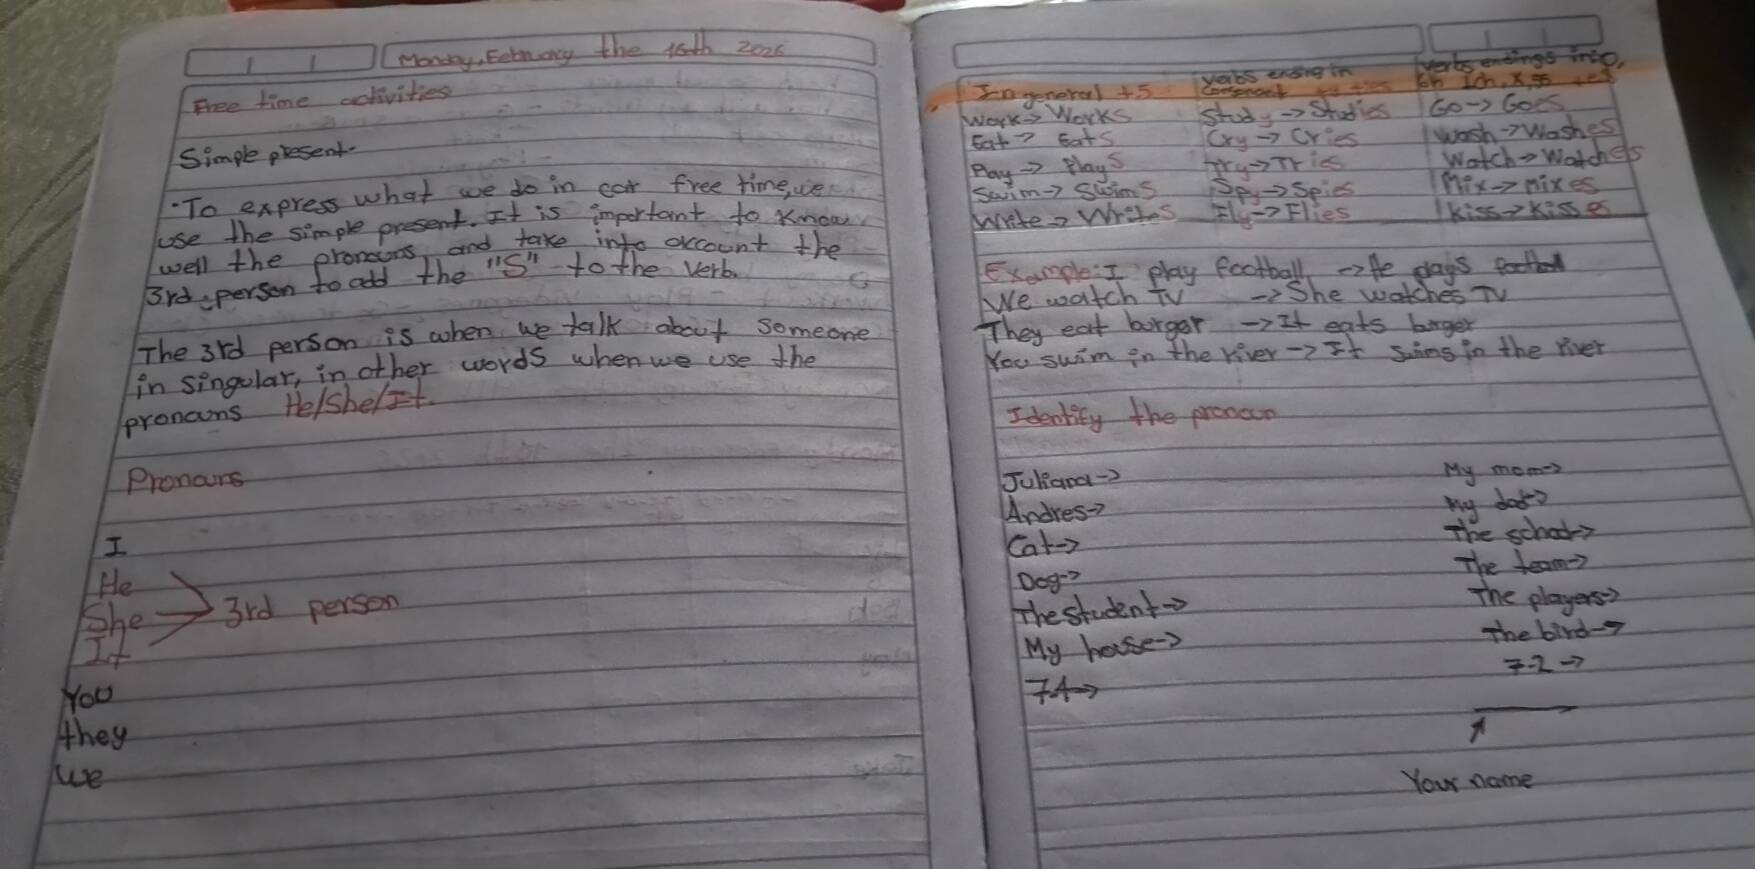 Monday, February the 16th 2026
Free time activities
Simple present
To express what we do in our free time, we
use the simple present. It is important to know
well the pronouns, and take into account the
3rd person to add the "S" to the verb.
The 3rd person is when we talk about someone
in singular, in other words when we use the
pronouns He/She/It.
Pronouns
I
He
She → 3rd person
It
You
they
we
In general +s
verbs ending in
consonant
verbs endings in o,
sh, ch, x, ss +es
Work → Works
Study → Studies
Go → Goes
Eat → Eats
Cry → Cries
Wash → Washes
Play → Plays
Try → Tries
Watch → Watches
Swim → Swims
Spy → Spies
Mix → mixes
Write → Writes
Fly → Flies
Kiss → Kisses
Example: I play football → He plays football
We watch TV → She watches TV
They eat burger → It eats burger
You swim in the river → It swims in the river
Identify the pronoun
Juliana →
My mom →
Andres →
My dad →
Cat →
The school →
Dog →
The team →
The student →
The players →
My house →
The bird →
7-2 →
Your name